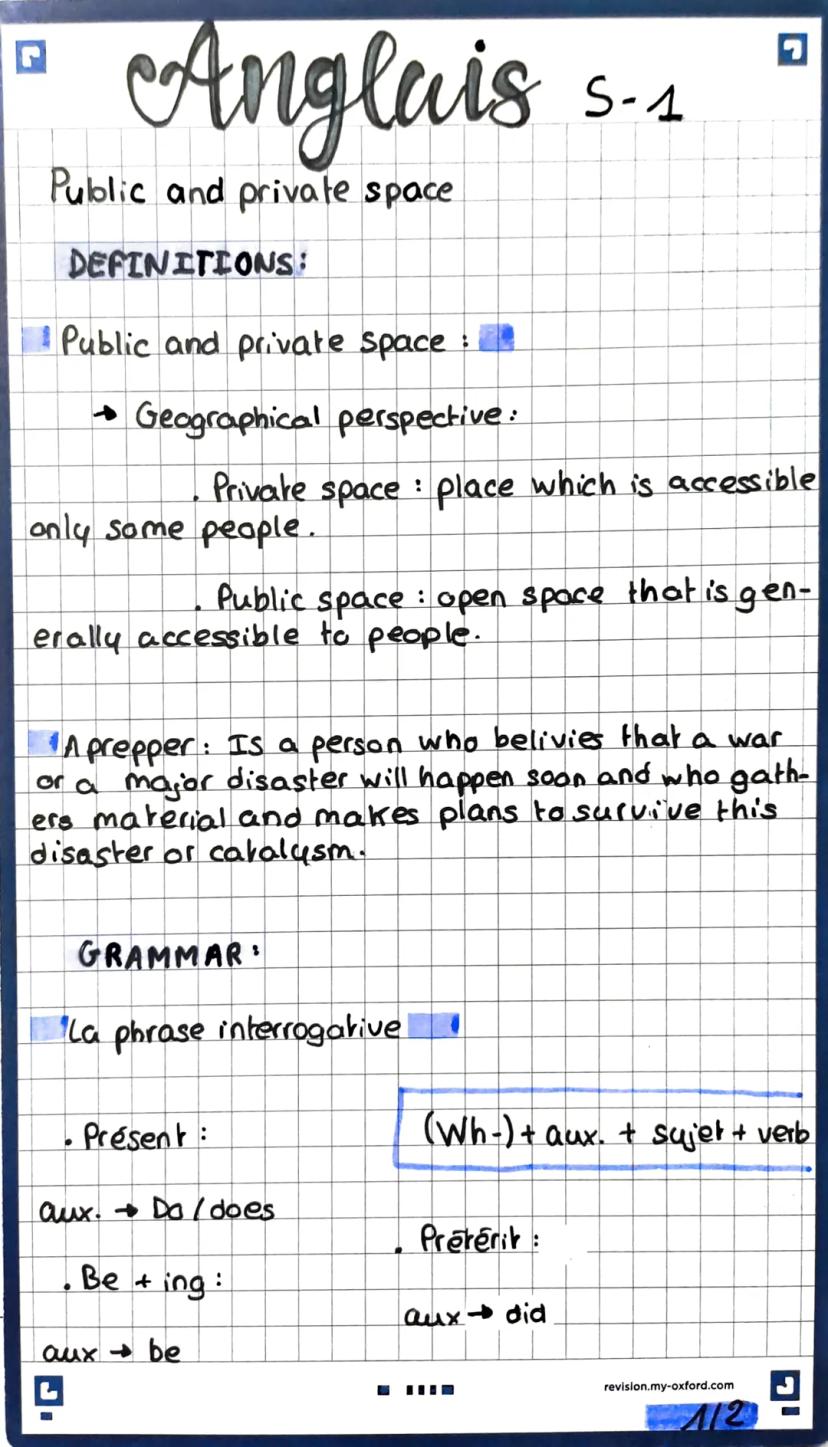 Anglais S-1
Public and private space
DEFINITIONS:
Public and private space :
→ Geographical perspective:
. Private space : place which is accessible
only some people.
. Public space : open space that is gen-
erally accessible to people.
A prepper: Is a person who belivies that a war
or a major disaster will happen soon and who gath-
ers material and makes plans to survive this
disaster or catalysm.
GRAMMAR:
La phrase interrogative
. Présent :
(Wh-) + aux. + sujet + verb
aux. → Do / does
. Prétérit :
. Be + ing :
aux → did
aux → be
revision.my-oxford.com
1/2